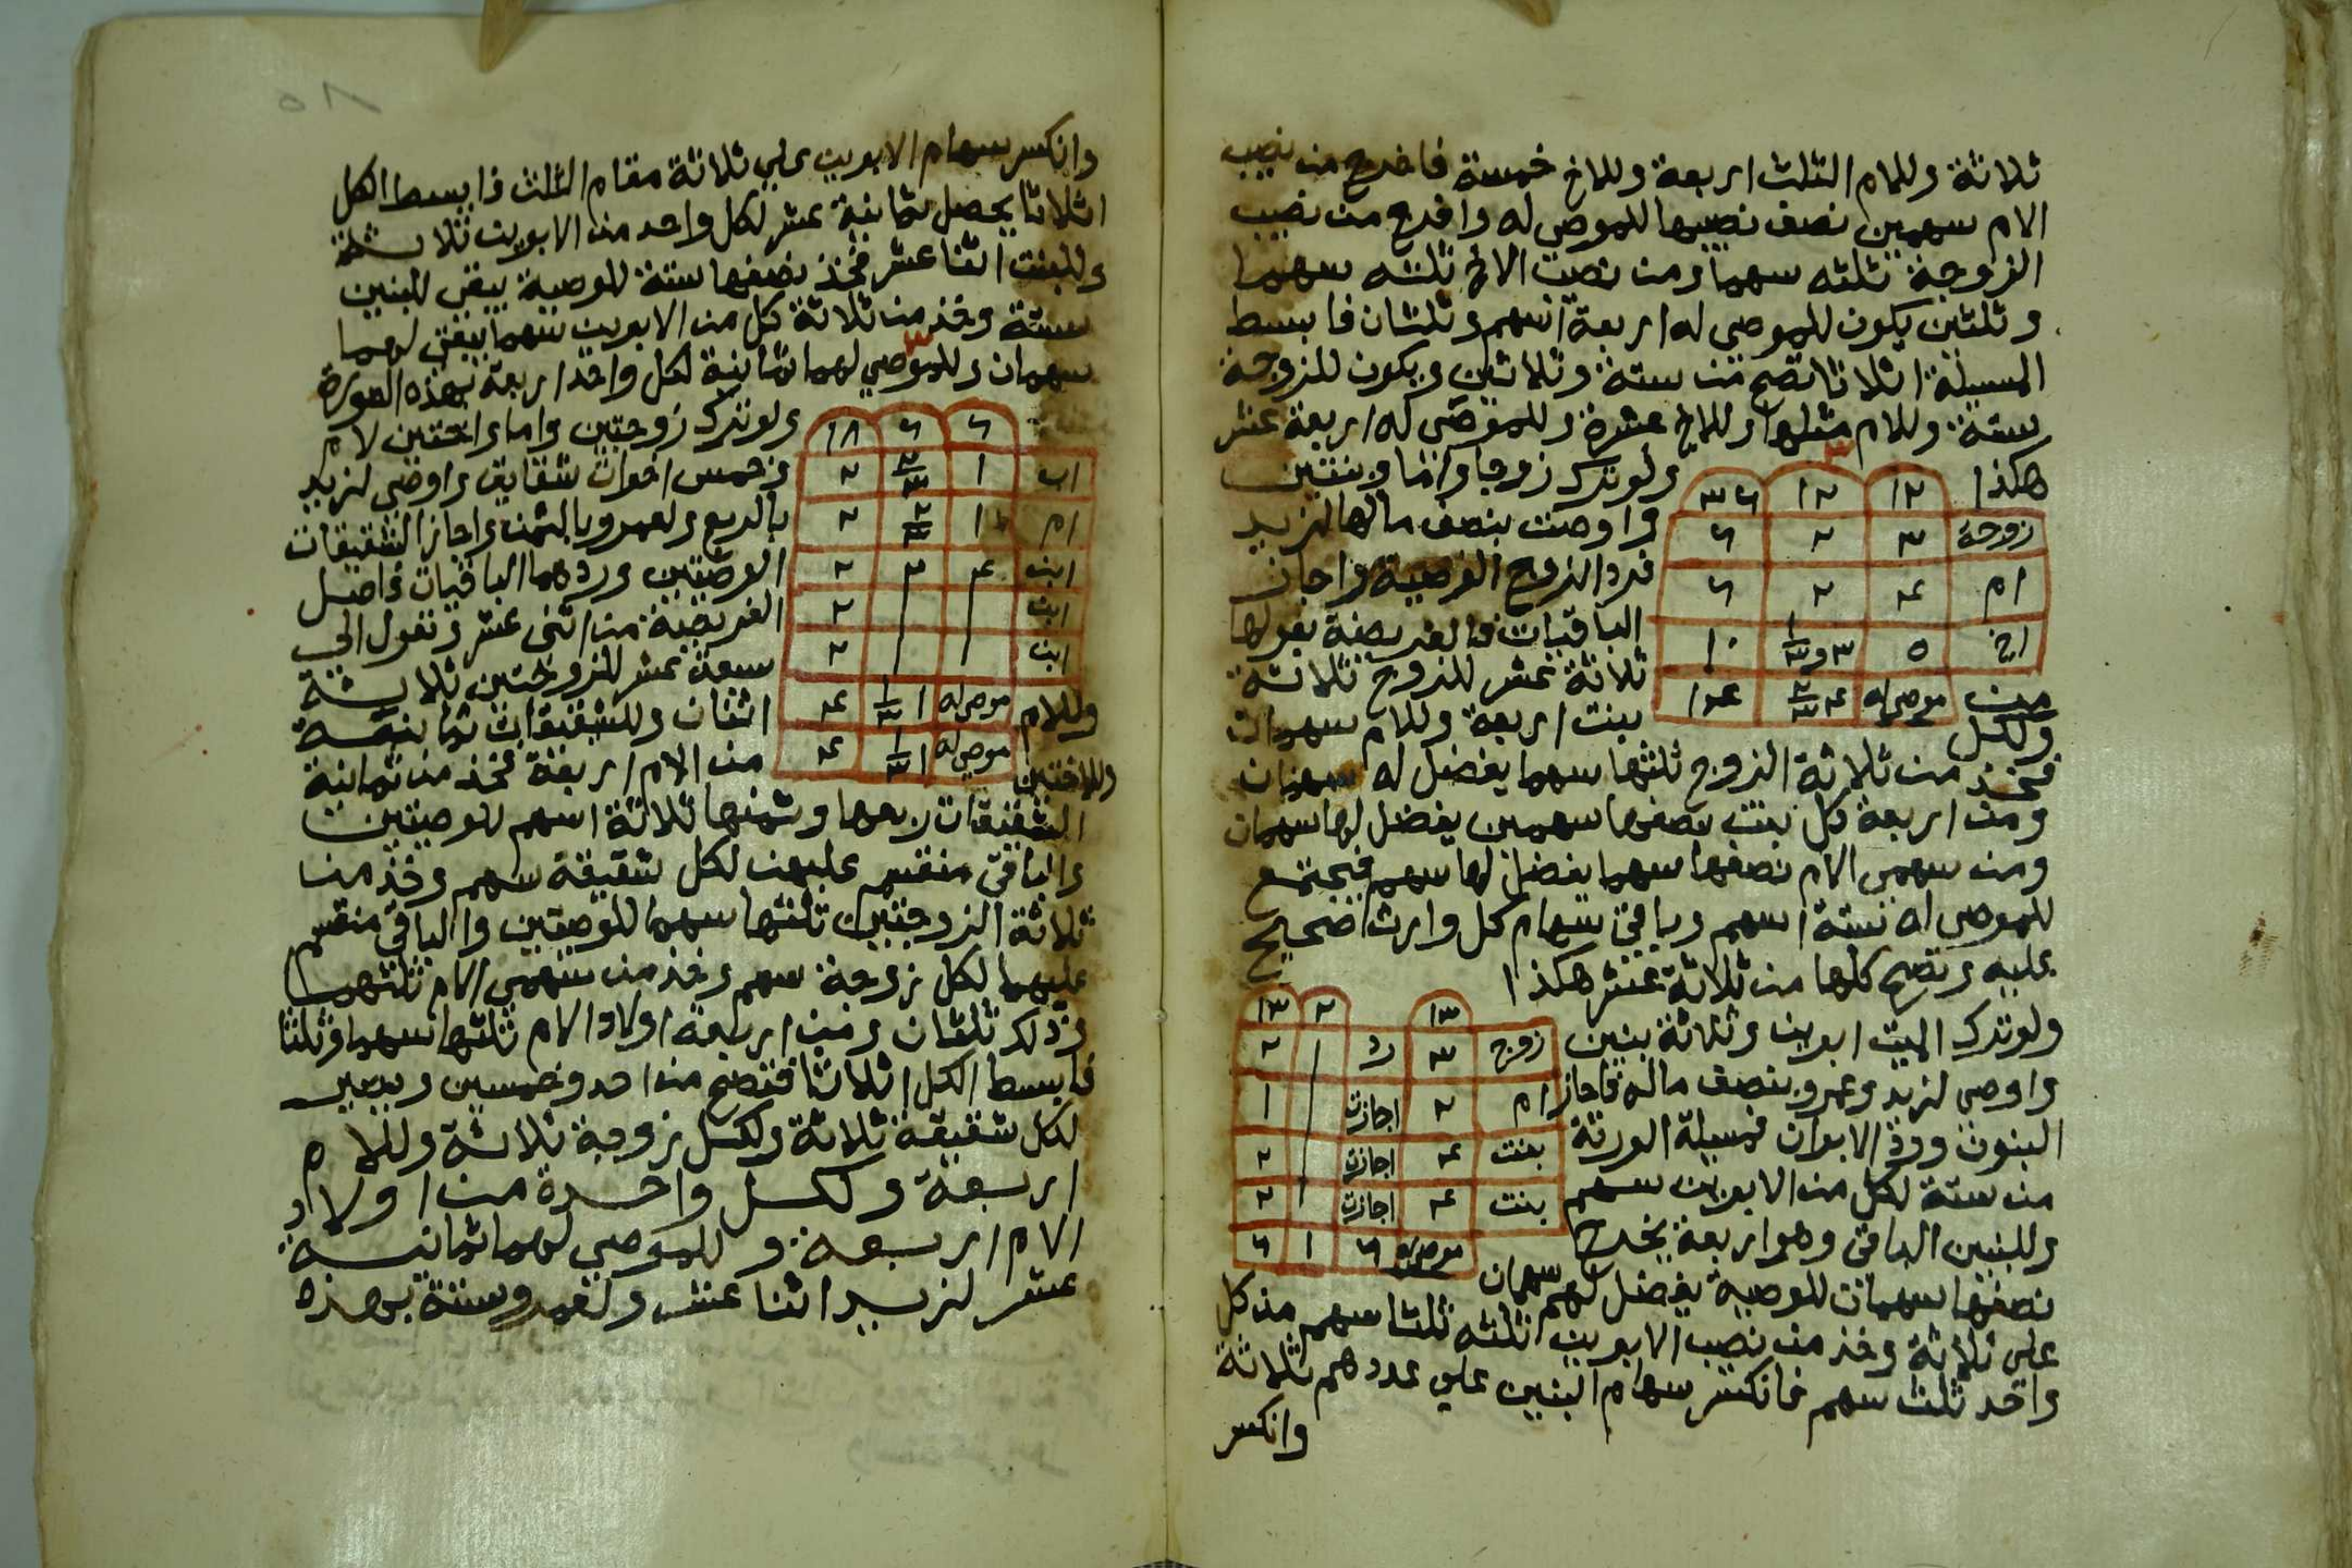 ثلاثة وللام الثلث اربعة وللاخ خمسة فاخرج من نصيب
الام سهمين نصف نصيبها للموصى له واخرج من نصيب
الزوجة ثلثه سهما ومن نصيب الاخ ثلثه سهما
وثلثين يكون للموصى له اربعة اسهم وثلثان فابسط
المسيلة اثلاثا تصح من ستة وثلاثين ويكون للزوجة
ستة وللام مثلها وللاخ عشرة وللموصى له اربعة عشر
هكذا
١٢ ١٢ ٣٦
٣
زوجة ٣ ٢ ٦
ام ٤ ٢ ٦
اخ ٥ ٣ و ١/٣ ١٠
موصى له ٤ ٢/٣ ١٤
ولو ترك زوجا واما وبنتين
واوصت بنصف مالها لزيد
فرد الزوج الوصية واجاز
الباقيات فالفريضة بعولها
ثلاثة عشر للزوج ثلاثة
ولكل بنت اربعة وللام سهمان
فخذ من ثلاثة الزوج ثلثها سهما يفضل له سهمان
ومن اربعة كل بنت نصفها سهمين يفضل لها سهمان
ومن سهمي الام نصفها سهما يفضل لها سهم فيجتمع
للموصى له ستة اسهم وباقي سهام كل وارث صحيح
عليه وتصح كلها من ثلاثة عشر هكذا
١٣ ٢ ١٣
زوج ٣ رد ١ ٢
ام ٢ اجازت ١
بنت ٤ اجازت ٢
بنت ٤ اجازت ١ ٢
موصى له ٦ ١ ٦
ولو ترك الميت ابوين وثلاثة بنين
واوصى لزيد وعمرو بنصف ماله فاجاز
البنون ورد الابوان فمسيلة الورثة
من ستة لكل من الابوين سهم
وللبنين الباقي وهو اربعة يخرج
نصفها سهمان للوصية يفضل لهم سهمان
على ثلاثة وخذ من نصيب الابوين ثلثه ثلثا سهم من كل
واحد ثلث سهم فانكسر سهام البنين على عددهم ثلاثة
وانكسر
وانكسر سهام الابوين على ثلاثة مقام الثلث فابسط الكل
اثلاثا يحصل ثمانية عشر لكل واحد من الابوين ثلاثة
وللبنين اثنا عشر فخذ نصفها ستة للوصية يبقى للبنين
ستة وخذ من ثلاثة كل من الابوين سهما يبقى لهما
سهمان وللموصي لهما ثمانية لكل واحد اربعة بهذه الصورة
٣
٦ ٦ ١٨
اب ١ ٢/٣ ٢
ام ١ ٢/٣ ٢
ابن ٤ ٢ ٢
ابن ٢
ابن ٢
موصى له ١ ١/٣ ٤
موصى له ١ ١/٣ ٤
ولو ترك زوجتين واما واختين لام
وخمس اخوات شقايق واوصى لزيد
بالربع ولعمرو بالثمن واجاز الشقيقات
الوصيتين وردهما الباقيات فاصل
الفريضة من اثنى عشر وتعول الى
سبعة عشر للزوجتين ثلاثة
وللام اثنان وللشقيقات ثمانية
وللاختين من الام اربعة فخذ من ثمانية
الشقيقات ربعها وثمنها ثلاثة اسهم للوصيتين
والباقي منقسم عليهن لكل شقيقة سهم وخذ من
ثلاثة الزوجتين ثلثها سهما للوصيتين والباقي منقسم
عليهما لكل زوجة سهم وخذ من سهمي الام ثلثهما
وذلك ثلثان ومن اربعة اولاد الام ثلثها سهما وثلثا
فابسط الكل اثلاثا فتصح من احد وخمسين وبيعين
لكل شقيقة ثلاثة ولكل زوجة ثلاثة وللام
اربعة ولكل واحدة من اولاد
الام اربعة وللموصي لهما ثمانية
عشر لزيد اثنا عشر ولعمرو ستة بهذه